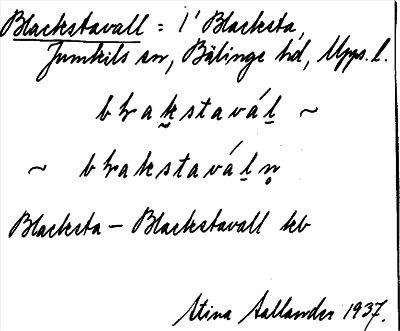 Blackstavall = 1' Blacksta,
Jumkils sn, Bälinge hd, Upps. l.
bʟakstavál ~
~ bʟakstaváln̥
Blacksta – Blackstavall kb
Stina Sallander 1937.